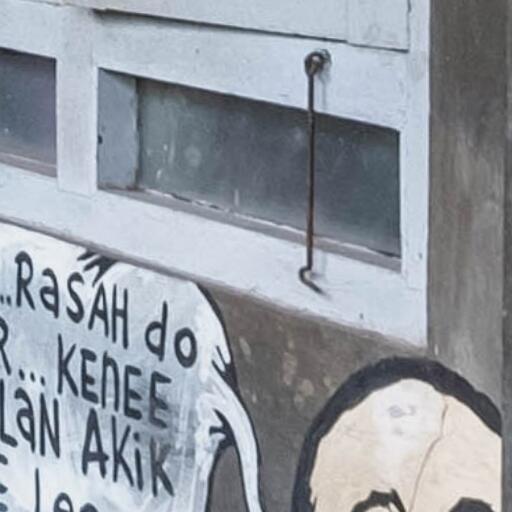 ...RasAH do
R... KENEE
LaN AKiK